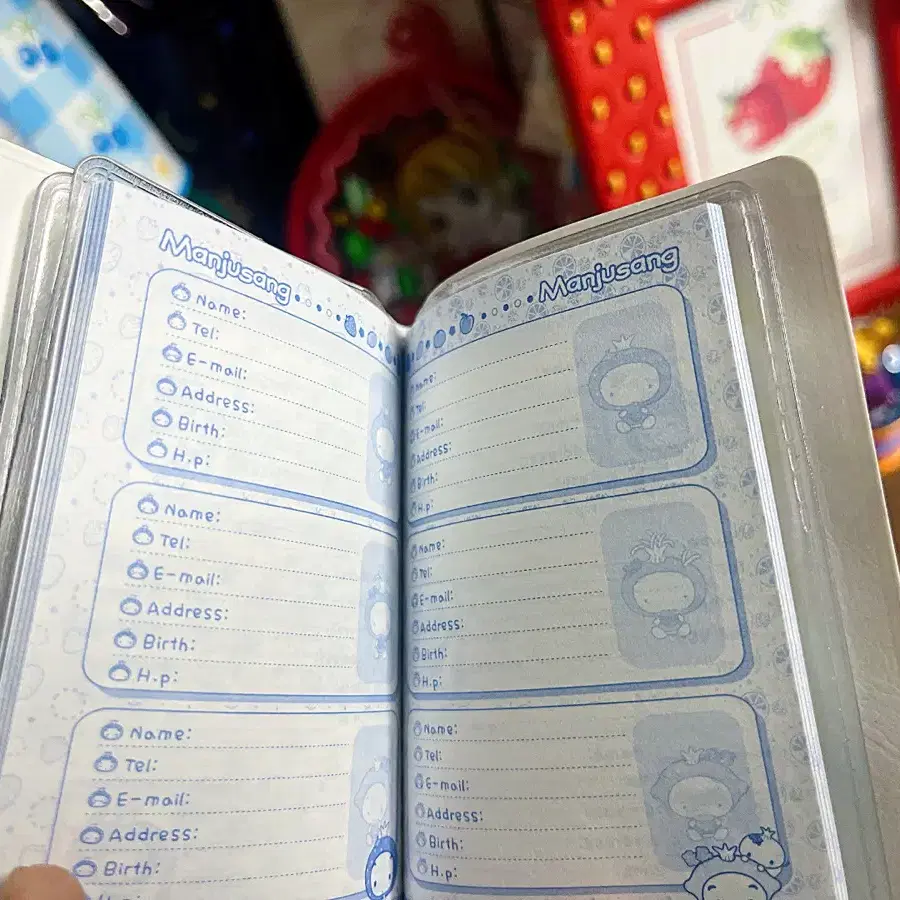 Manjusang
Name:
Tel:
E-mail:
Address:
Birth:
H.p:
Name:
Tel:
E-mail:
Address:
Birth:
H.p:
Name:
Tel:
E-mail:
Address:
Birth:
H.p:
Manjusang
Name:
Tel:
E-mail:
Address:
Birth:
H.p:
Name:
Tel:
E-mail:
Address:
Birth:
H.p:
Name:
Tel:
E-mail:
Address:
Birth:
H.p: